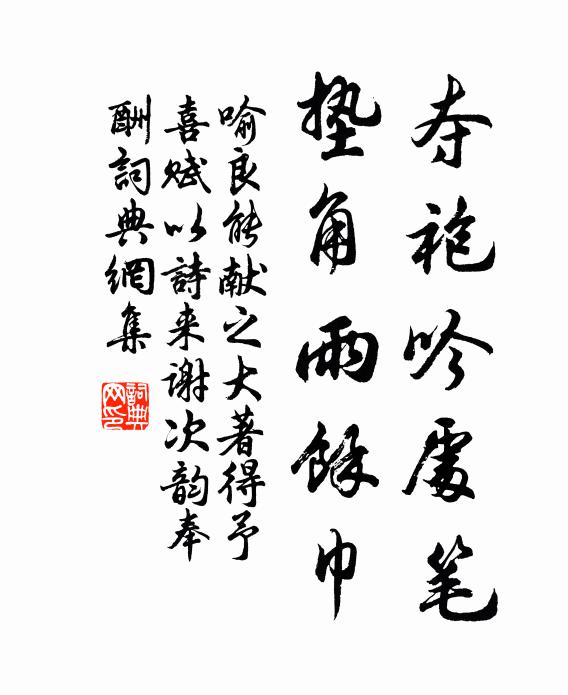 夺袍吟处笔
垫角雨馀巾
喻良能献之大著得予
喜赋以詩来谢次韵奉
酬詞典網集
詞典网印